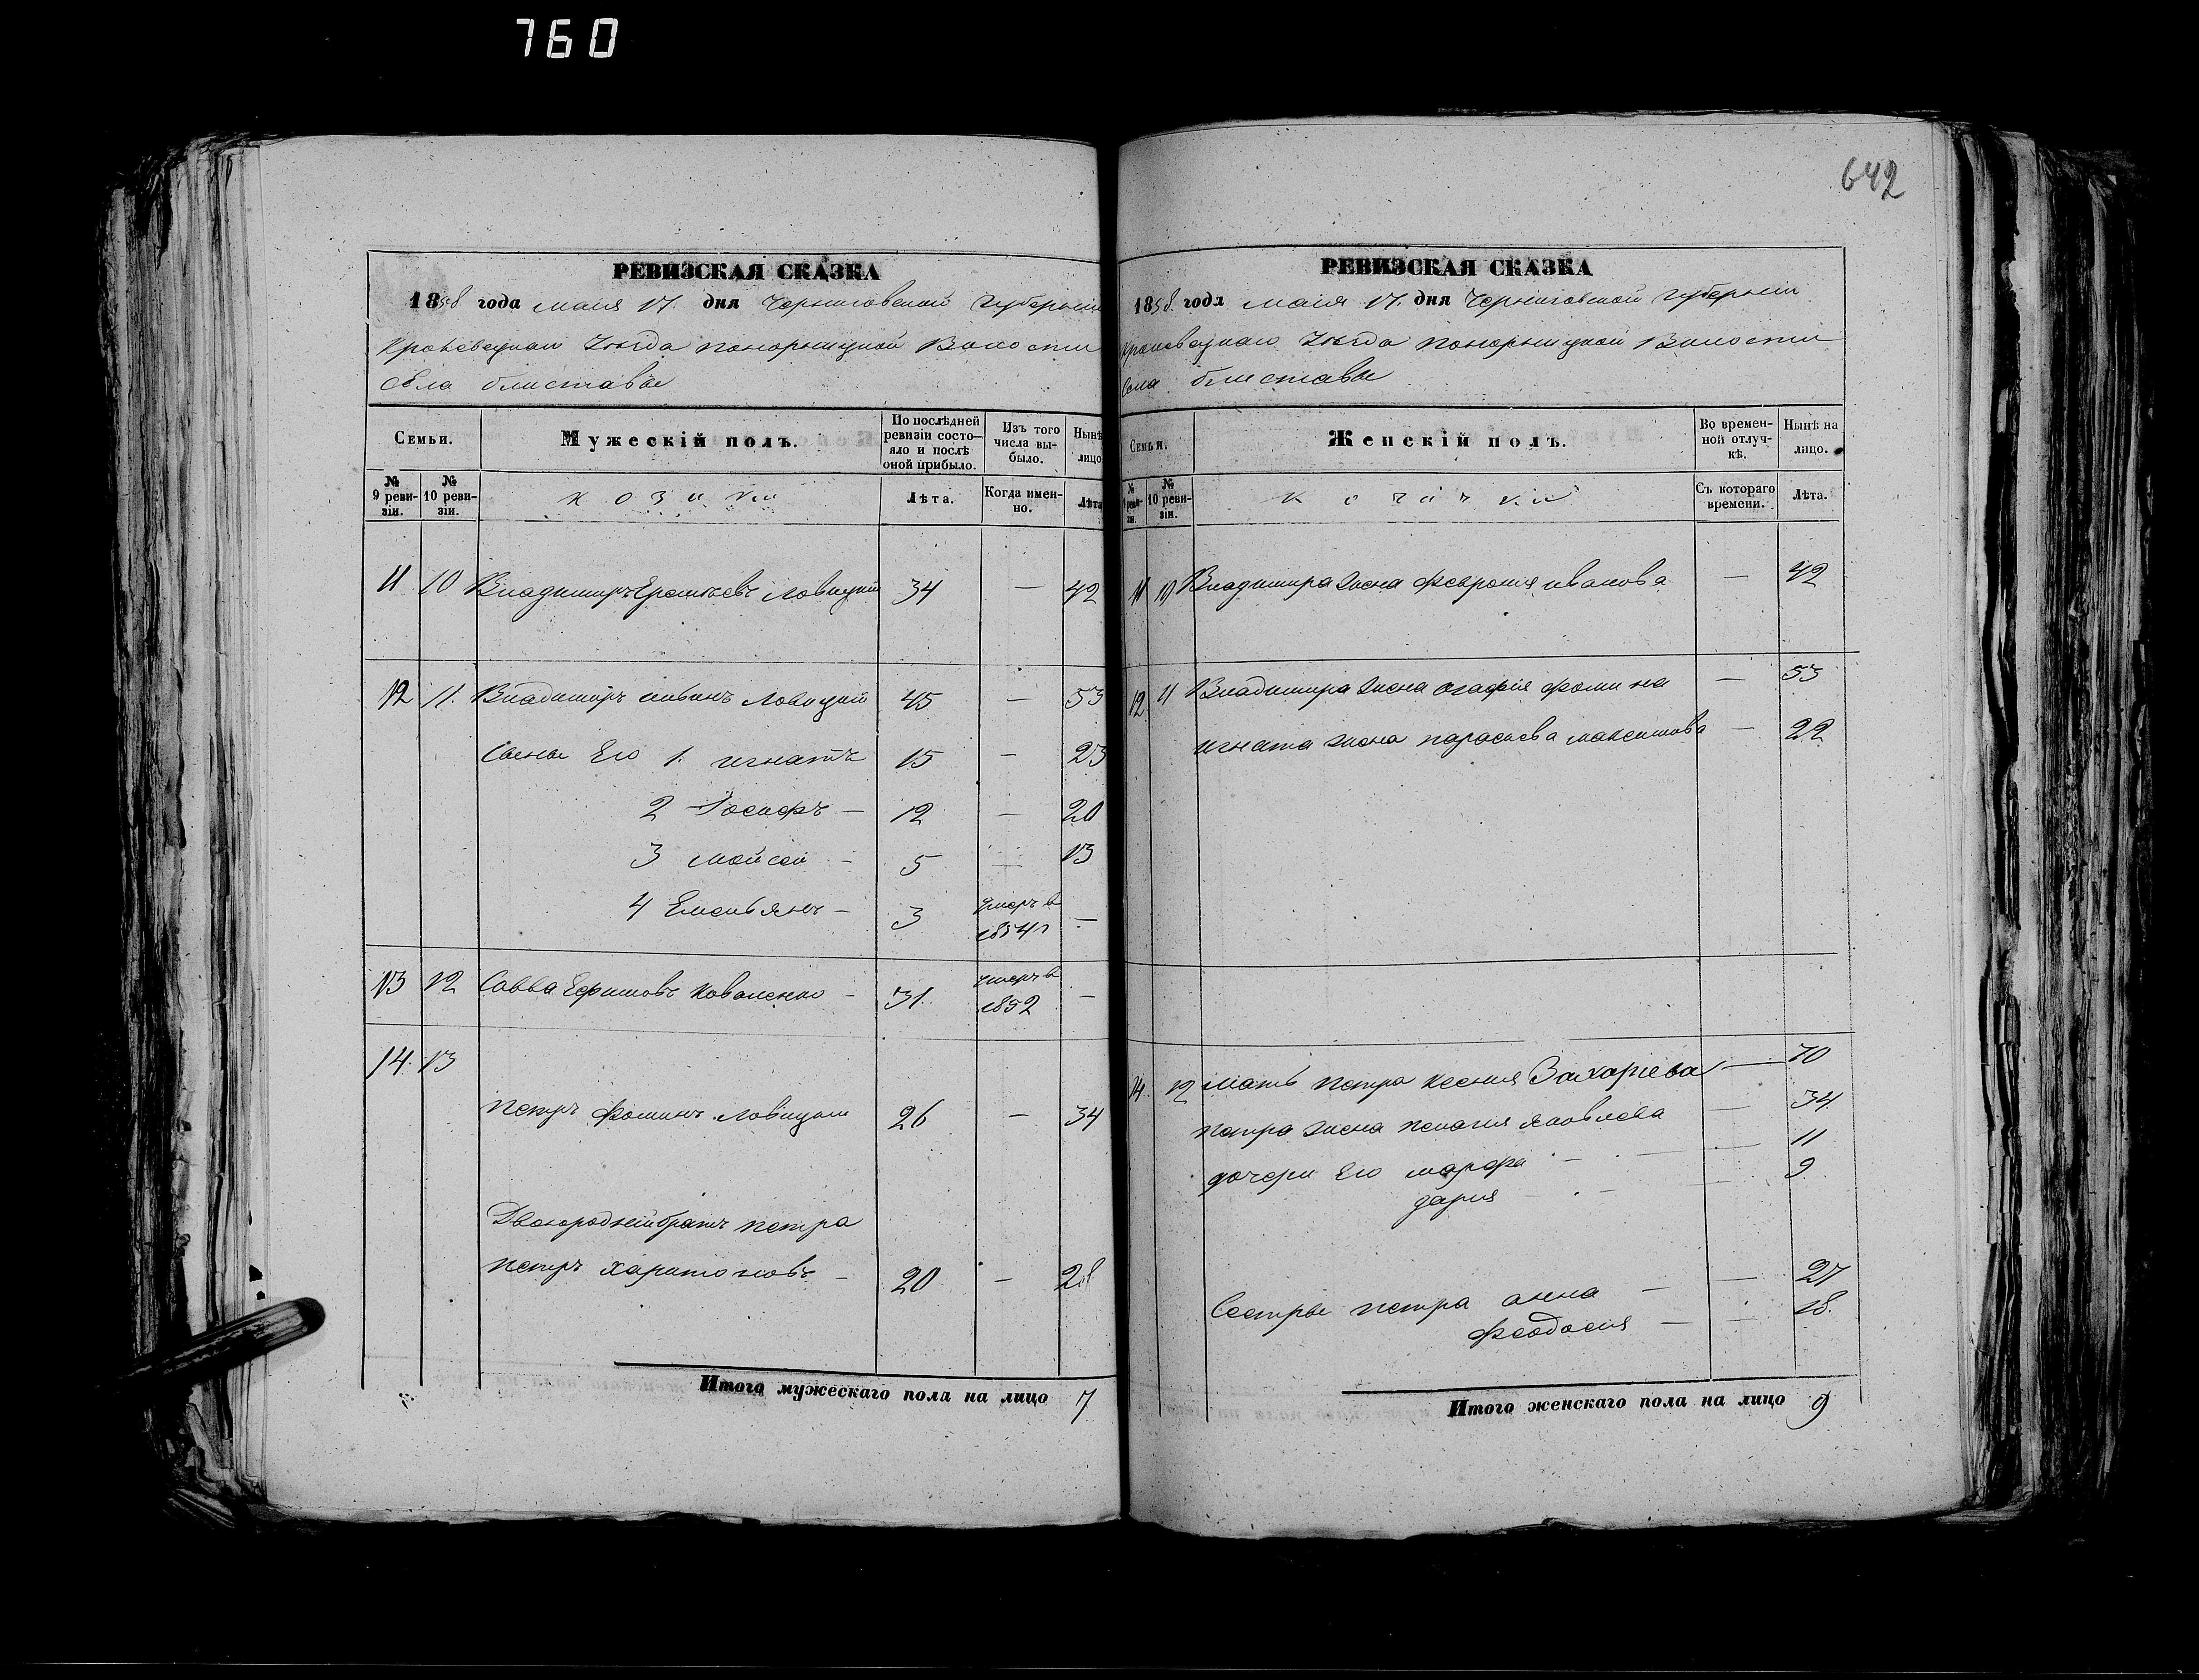 760
642
РЕВИЗСКАЯ СКАЗКА
1858 года маія 17. дня Черниговской Губерніи
Кролевецкаго Уѣзда Понорницкой Волости
Села блиставы
Семьи.
Мужескій полъ.
По послѣдней ревизіи состояло и послѣ оной прибыло.
Изъ того числа выбыло.
Нынѣ лицо
№ 9 ревизіи.
№ 10 ревизіи.
козаки
Лѣта.
Когда именно.
Лѣта
11 10 Владимиръ Еремѣевъ Ловицкій 34 — 42
12 11. Владимиръ Ловицкій 45 — 53
Сыны Его 1. игнатъ 15 — 23
2 Іосифъ — 12 — 20
3 мойсей — 5 — 13
4 Емельянъ — 3 умеръ в 1854 г —
13 12 Савва Ефимовъ Коваленко — 31. умеръ в 1852 —
14. 13
петръ Фоминъ Ловицкий 26 — 34
Двоюродней братъ петра
петръ харитоновъ — 20 — 28
Итого мужескаго пола на лицо 7
РЕВИЗСКАЯ СКАЗКА
1858. года маія 17. дня Черниговской Губерніи
Кролевецкаго Уѣзда Понорницкой Волости
Села блиставы
Семьи.
Женскій полъ.
Во временной отлучкѣ.
Нынѣ на лицо.
№ ревизіи.
№ 10 ревизіи.
козачки
Съ котораго времени.
Лѣта.
11 10 Владимира жена Феврония иванова — 42
12 11 Владимира жена агафія фомина — 53
игната жена параскева максимова — 22
14. 12 мать петра ксения Захаріева — 70
петра жена пелагия яковлева — 34
дочери Его марфа — 11
дария — 9
Сестры петра анна — 27
феодосия — 18.
Итого женскаго пола на лицо 9